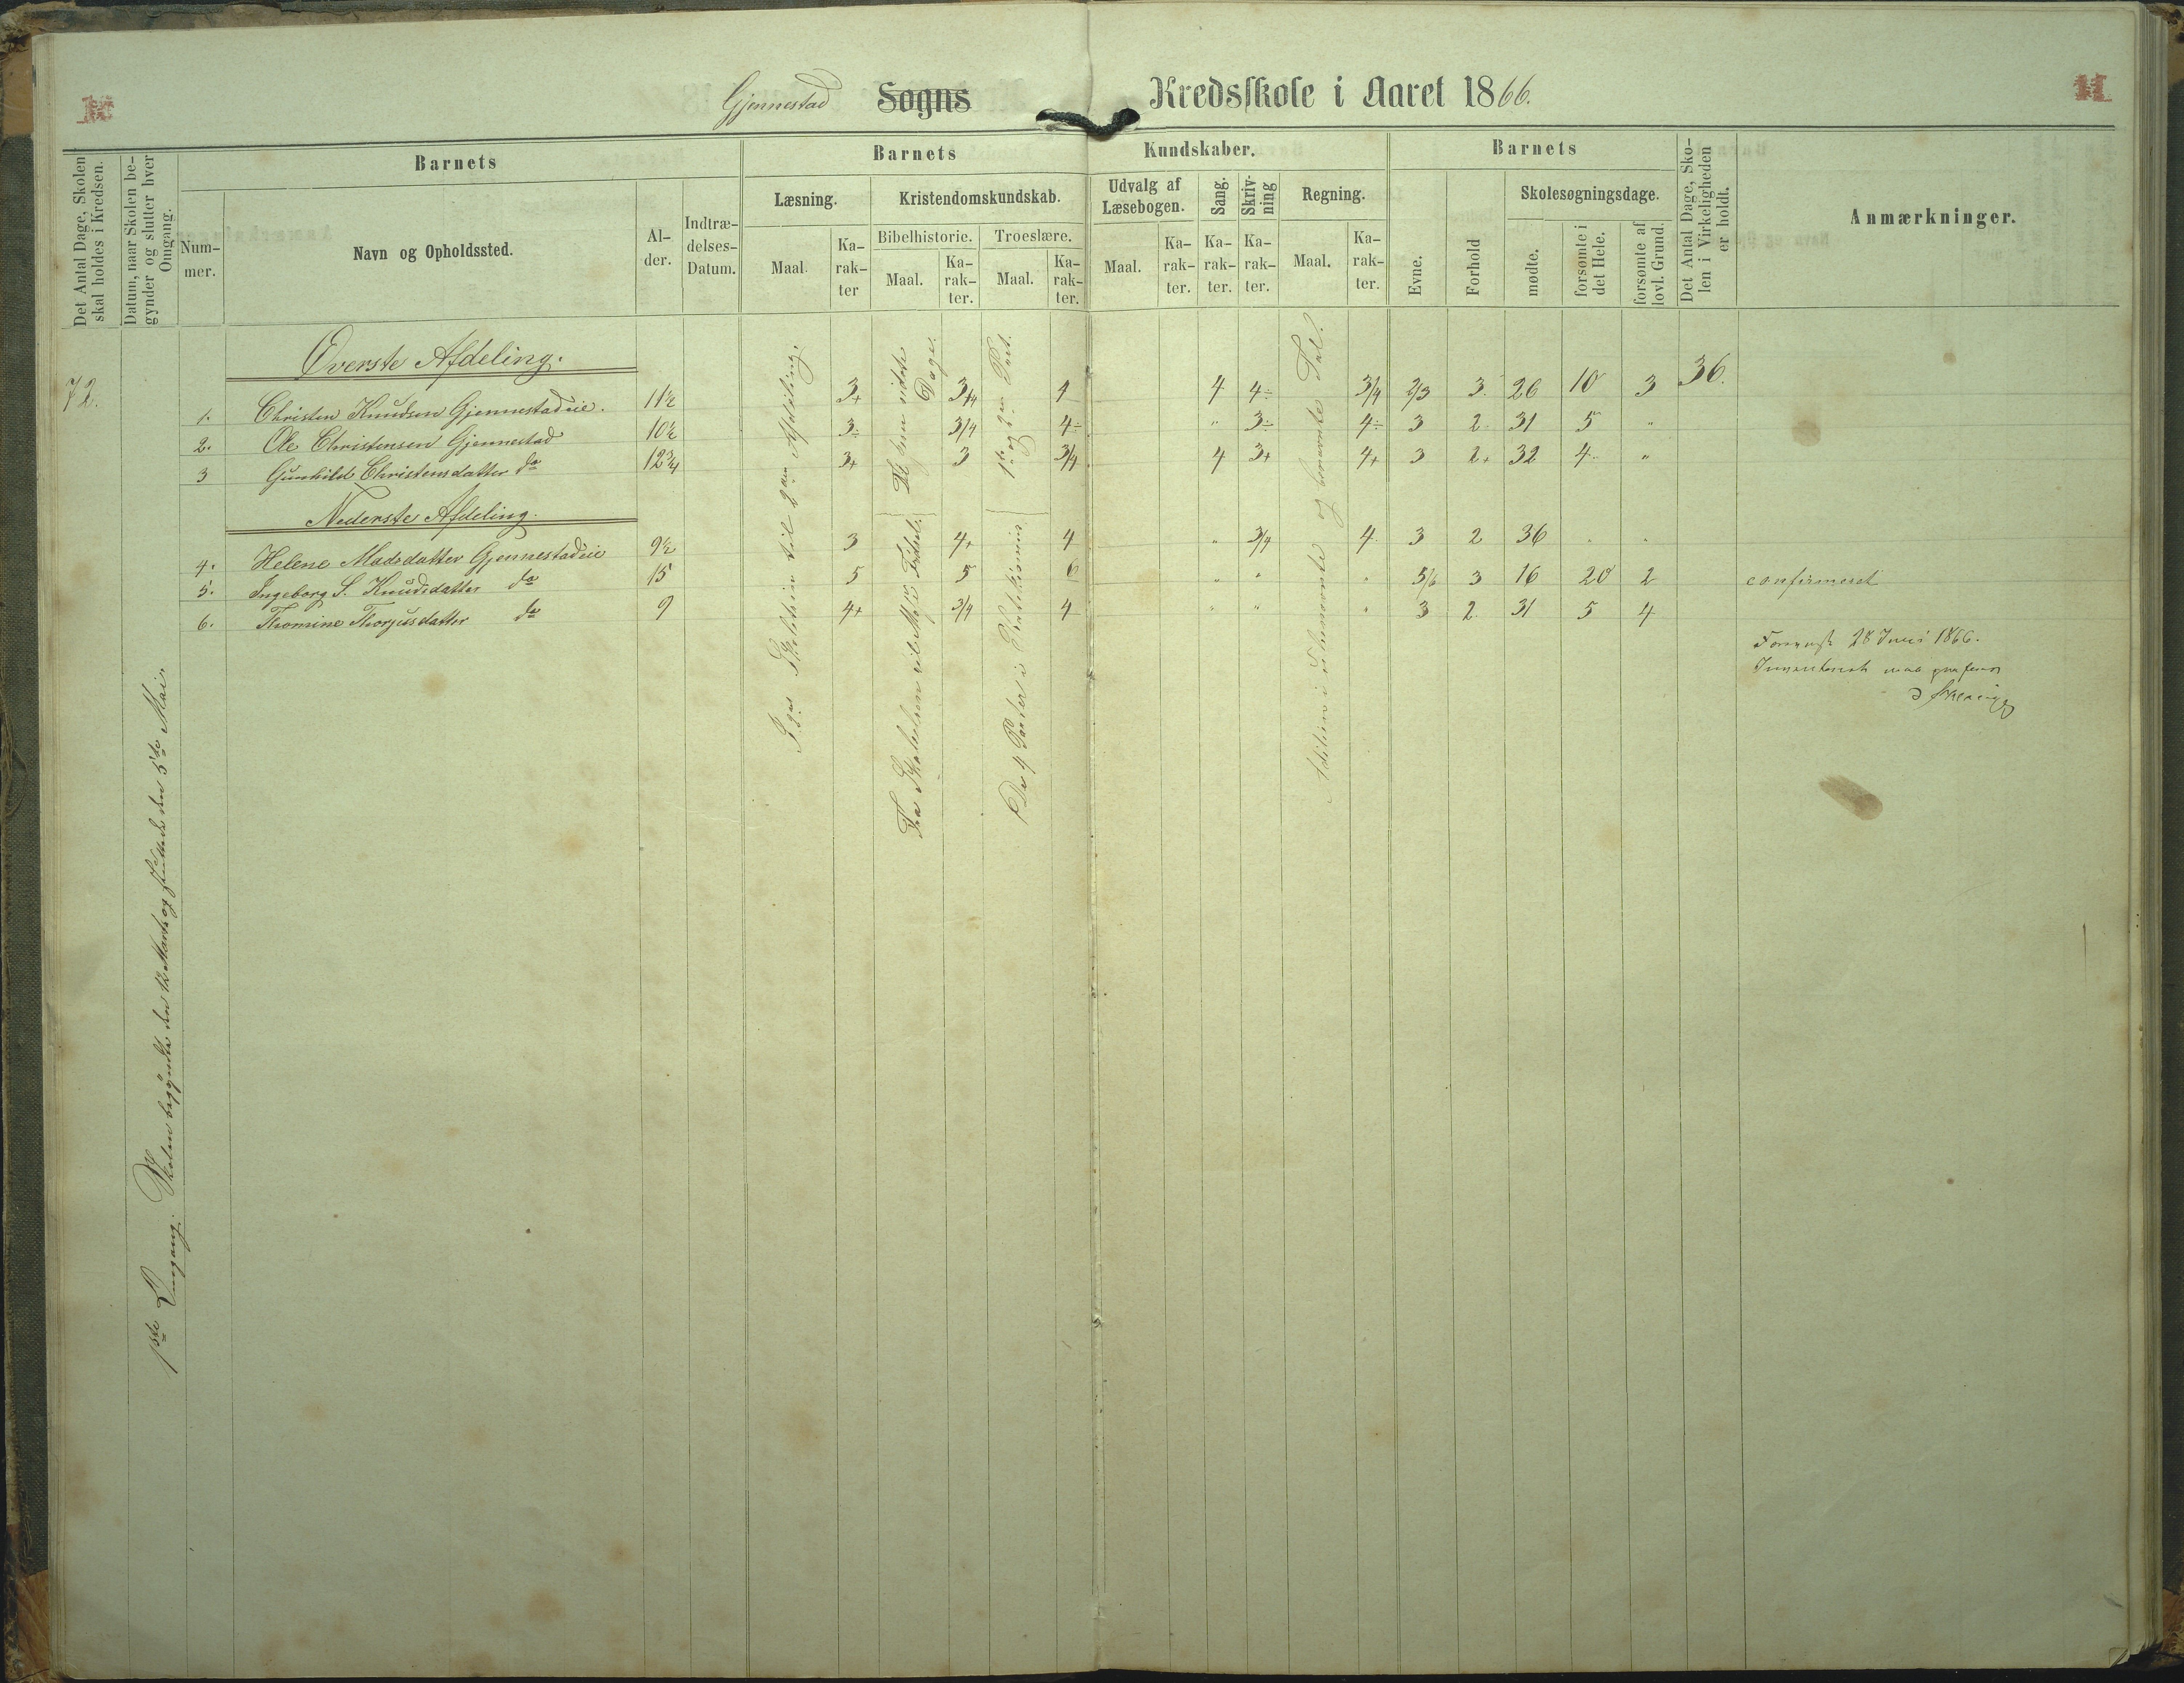 Gjennestad Sogns Kredsskole i Aaret 1866.
11
Det Antal Dage, Skolen skal holdes i Kredsen.
Datum, naar Skolen begynder og slutter hver Omgang.
Barnets
Nummer.
Navn og Opholdssted.
Alder.
Indtrædelses-Datum.
Barnets Kundskaber.
Læsning.
Maal.
Karakter
Kristendomskundskab.
Bibelhistorie.
Maal.
Karakter.
Troeslære.
Maal.
Karakter.
Udvalg af Læsebogen.
Maal.
Karakter.
Sang.
Karakter.
Skrivning
Karakter.
Regning.
Maal.
Karakter.
Barnets
Evne.
Forhold
Skolesøgningsdage.
mødte.
forsømte i det Hele.
forsømte af lovl. Grund.
Det Antal Dage, Skolen i Virkeligheden er holdt.
Anmærkninger.
72.
1ste Omgang. Skolen begyndte den 12 Marts og sluttede den 5te Mai.
Øverste Afdeling.
1. Christen Knudsen Gjennestadeie. 11½ 3+ 3/4 4 4 4÷ 3/4 2/3 3 26 10 3 36.
2. Ole Christensen Gjennestad 10½ 3÷ 3/4 4÷ " 3÷ 4÷ 3 2 31 5 "
3 Gunhild Christensdatter do 12¾ 3+ 3 3/4 4 3+ 4+ 3 2+ 32 4 "
Nederste Afdeling.
4. Helene Madsdatter Gjennestadeie 9½ 3 4+ 4 " 3/4 4 3 2 36 " "
5. Ingeborg S. Knudsdatter do 15 5 5 6 " " " 5/6 3 16 20 2 confirmeret
6. Thomine Thorjusdatter do 9 4+ 3/4 4 " " " 3 2 31 5 4
til 2den Afdeling.
sidste Dage.
1ste og 2den Part.
Fra Skabelsen til Mose Fødsel.
De 4 Parter i
Addition i ubenævnte og benævnte Tal.
28 Juni 1866.